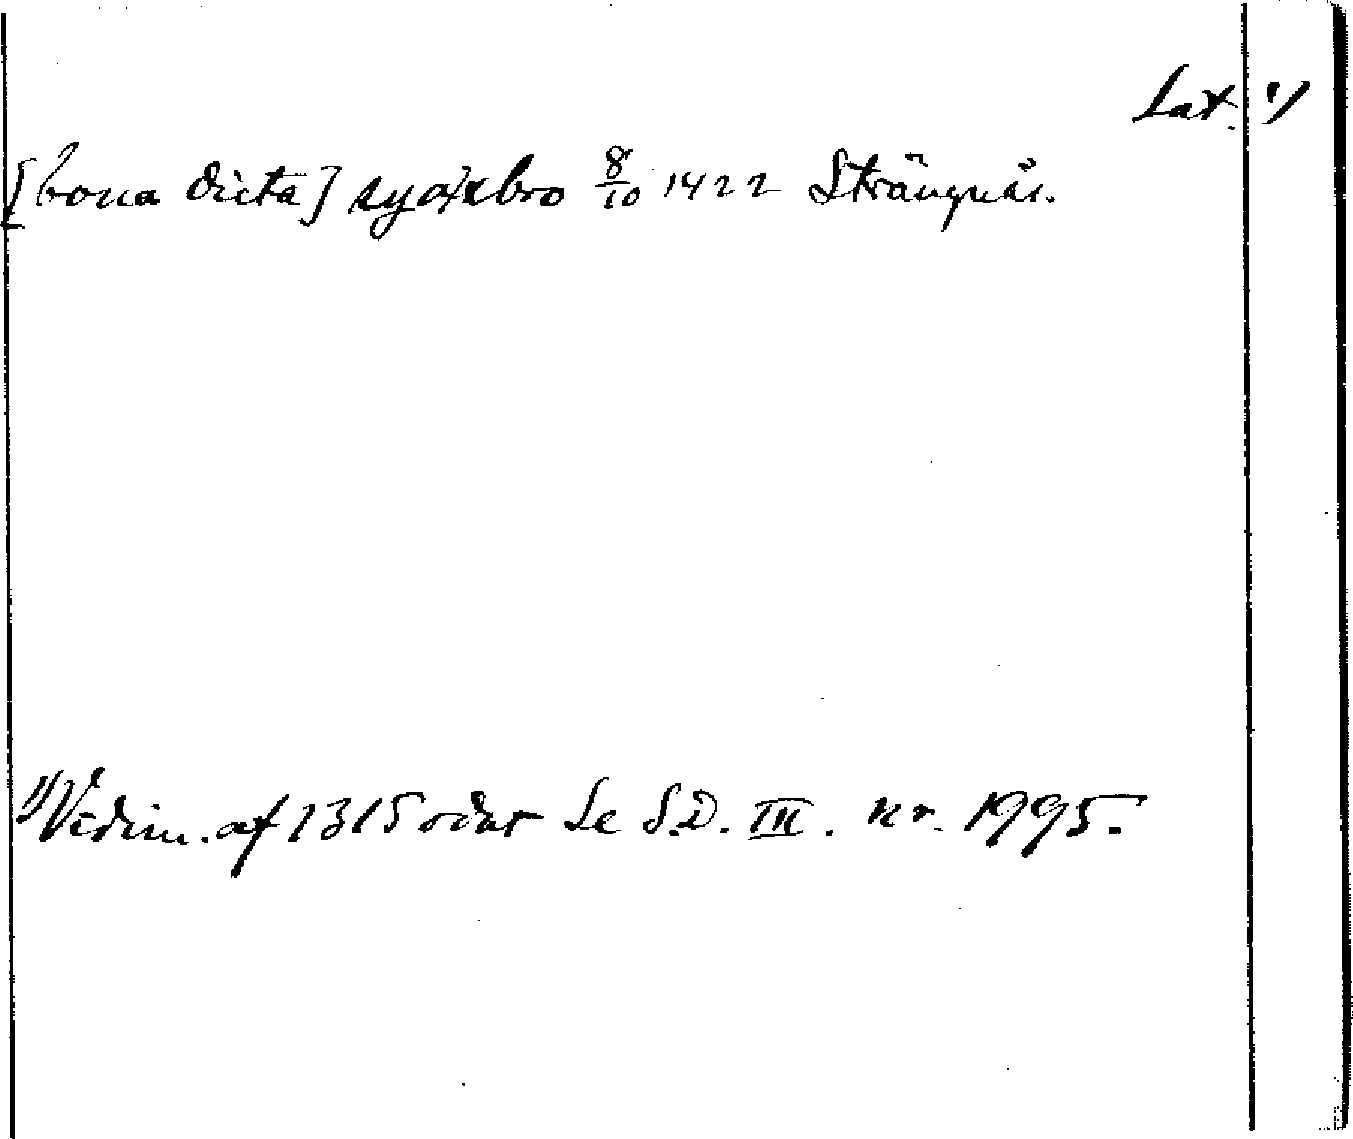 Lat. 1)
[bona dicta] syoxbro 8/10 1422 Strängnäs.
1) Vidim. af 1315 odat Se S.D. III. nr. 1995.